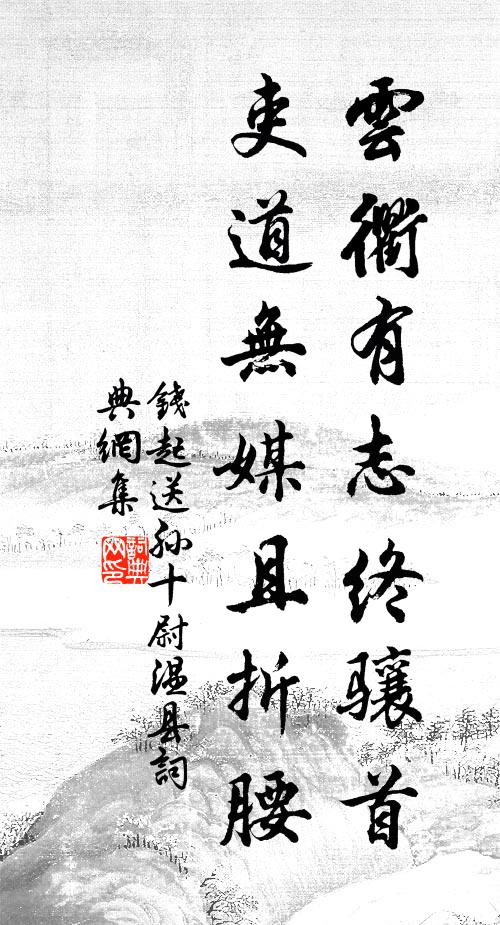 雲衢有志终驤首
吏道無媒且折腰
錢起送孙十尉温县詞
典網集
詞典网印